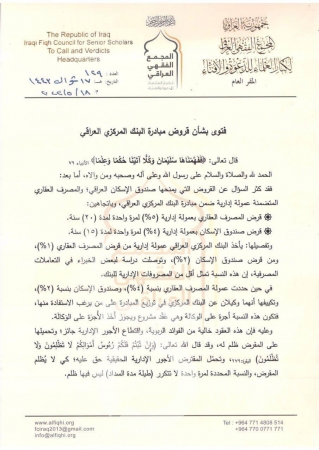 The Republic of Iraq
Iraqi Fiqh Council for Senior Scholars
To Call and Verdicts
Headquarters
المجمع
الفقهي
العراقي
جمهورية العراق
المجمع الفقهي العراقي
لكبار العلماء للدعوة والإفتاء
المقر العام
العدد: ١٤٩
التاريخ: ١٧ شوال ١٤٤٣
فتوى بشأن قروض مبادرة البنك المركزي العراقي
قال تعالى: ﴿فَفَهَّمْنَاهَا سُلَيْمَانَ وَكُلًّا آتَيْنَا حُكْمًا وَعِلْمًا﴾ الأنبياء ٧٩
الحمد لله والصلاة والسلام على رسول الله وعلى آله وصحبه ومن والاه، أما بعد:
فقد كثر السؤال عن القروض التي يمنحها صندوق الإسكان العراقي؛ والمصرف العقاري
المتضمنة عمولة إدارية ضمن مبادرة البنك المركزي العراقي، وباتجاهين:
قرض المصرف العقاري بعمولة إدارية (٥%) لمرة واحدة لمدة (٢٠) سنة.
قرض صندوق الإسكان بعمولة إدارية (٤%) لمرة واحدة لمدة (١٥) سنة.
وتفصيلها: يأخذ البنك المركزي العراقي عمولة إدارية من قرض المصرف العقاري (١%)،
ومن قرض صندوق الإسكان (٢%)، وتوصلت دراسة لبعض الخبراء في التعاملات
المصرفية، إن هذه النسبة تمثل أقل من المصروفات الإدارية للبنك.
في حين حددت عمولة المصرف العقاري بنسبة (٤%)، وصندوق الإسكان بنسبة (٢%)،
وتكييفها أنهما وكيلان عن البنك المركزي في توزيع المبادرة على من يرغب الاستفادة منها،
فتكون هذه النسبة أجرة على الوكالة وهي عقد مشروع ويجوز أخذ الأجرة على الوكالة.
وعليه فإن هذه العقود خالية من الفوائد الربوية، واقتطاع الأجور الإدارية جائز؛ وتحميلها
على المقترض ظلم له، وقد قال الله تعالى: ﴿وَإِن تُبْتُمْ فَلَكُمْ رُءُوسُ أَمْوَالِكُمْ لَا تَظْلِمُونَ وَلَا
تُظْلَمُونَ﴾ وتحمّل المقترض الأجور الإدارية الحقيقية حق عليه؛ كي لا يُظلم
المقرض، والنسبة المحددة لمرة واحدة لا تتكرر (طيلة مدة السداد) ليس فيها ظلم.
www.alfiqhi.org
fconaq2013@gmail.com
info@alfiqhi.org
Tel : +964 771 4808 514
+964 770 0771 771